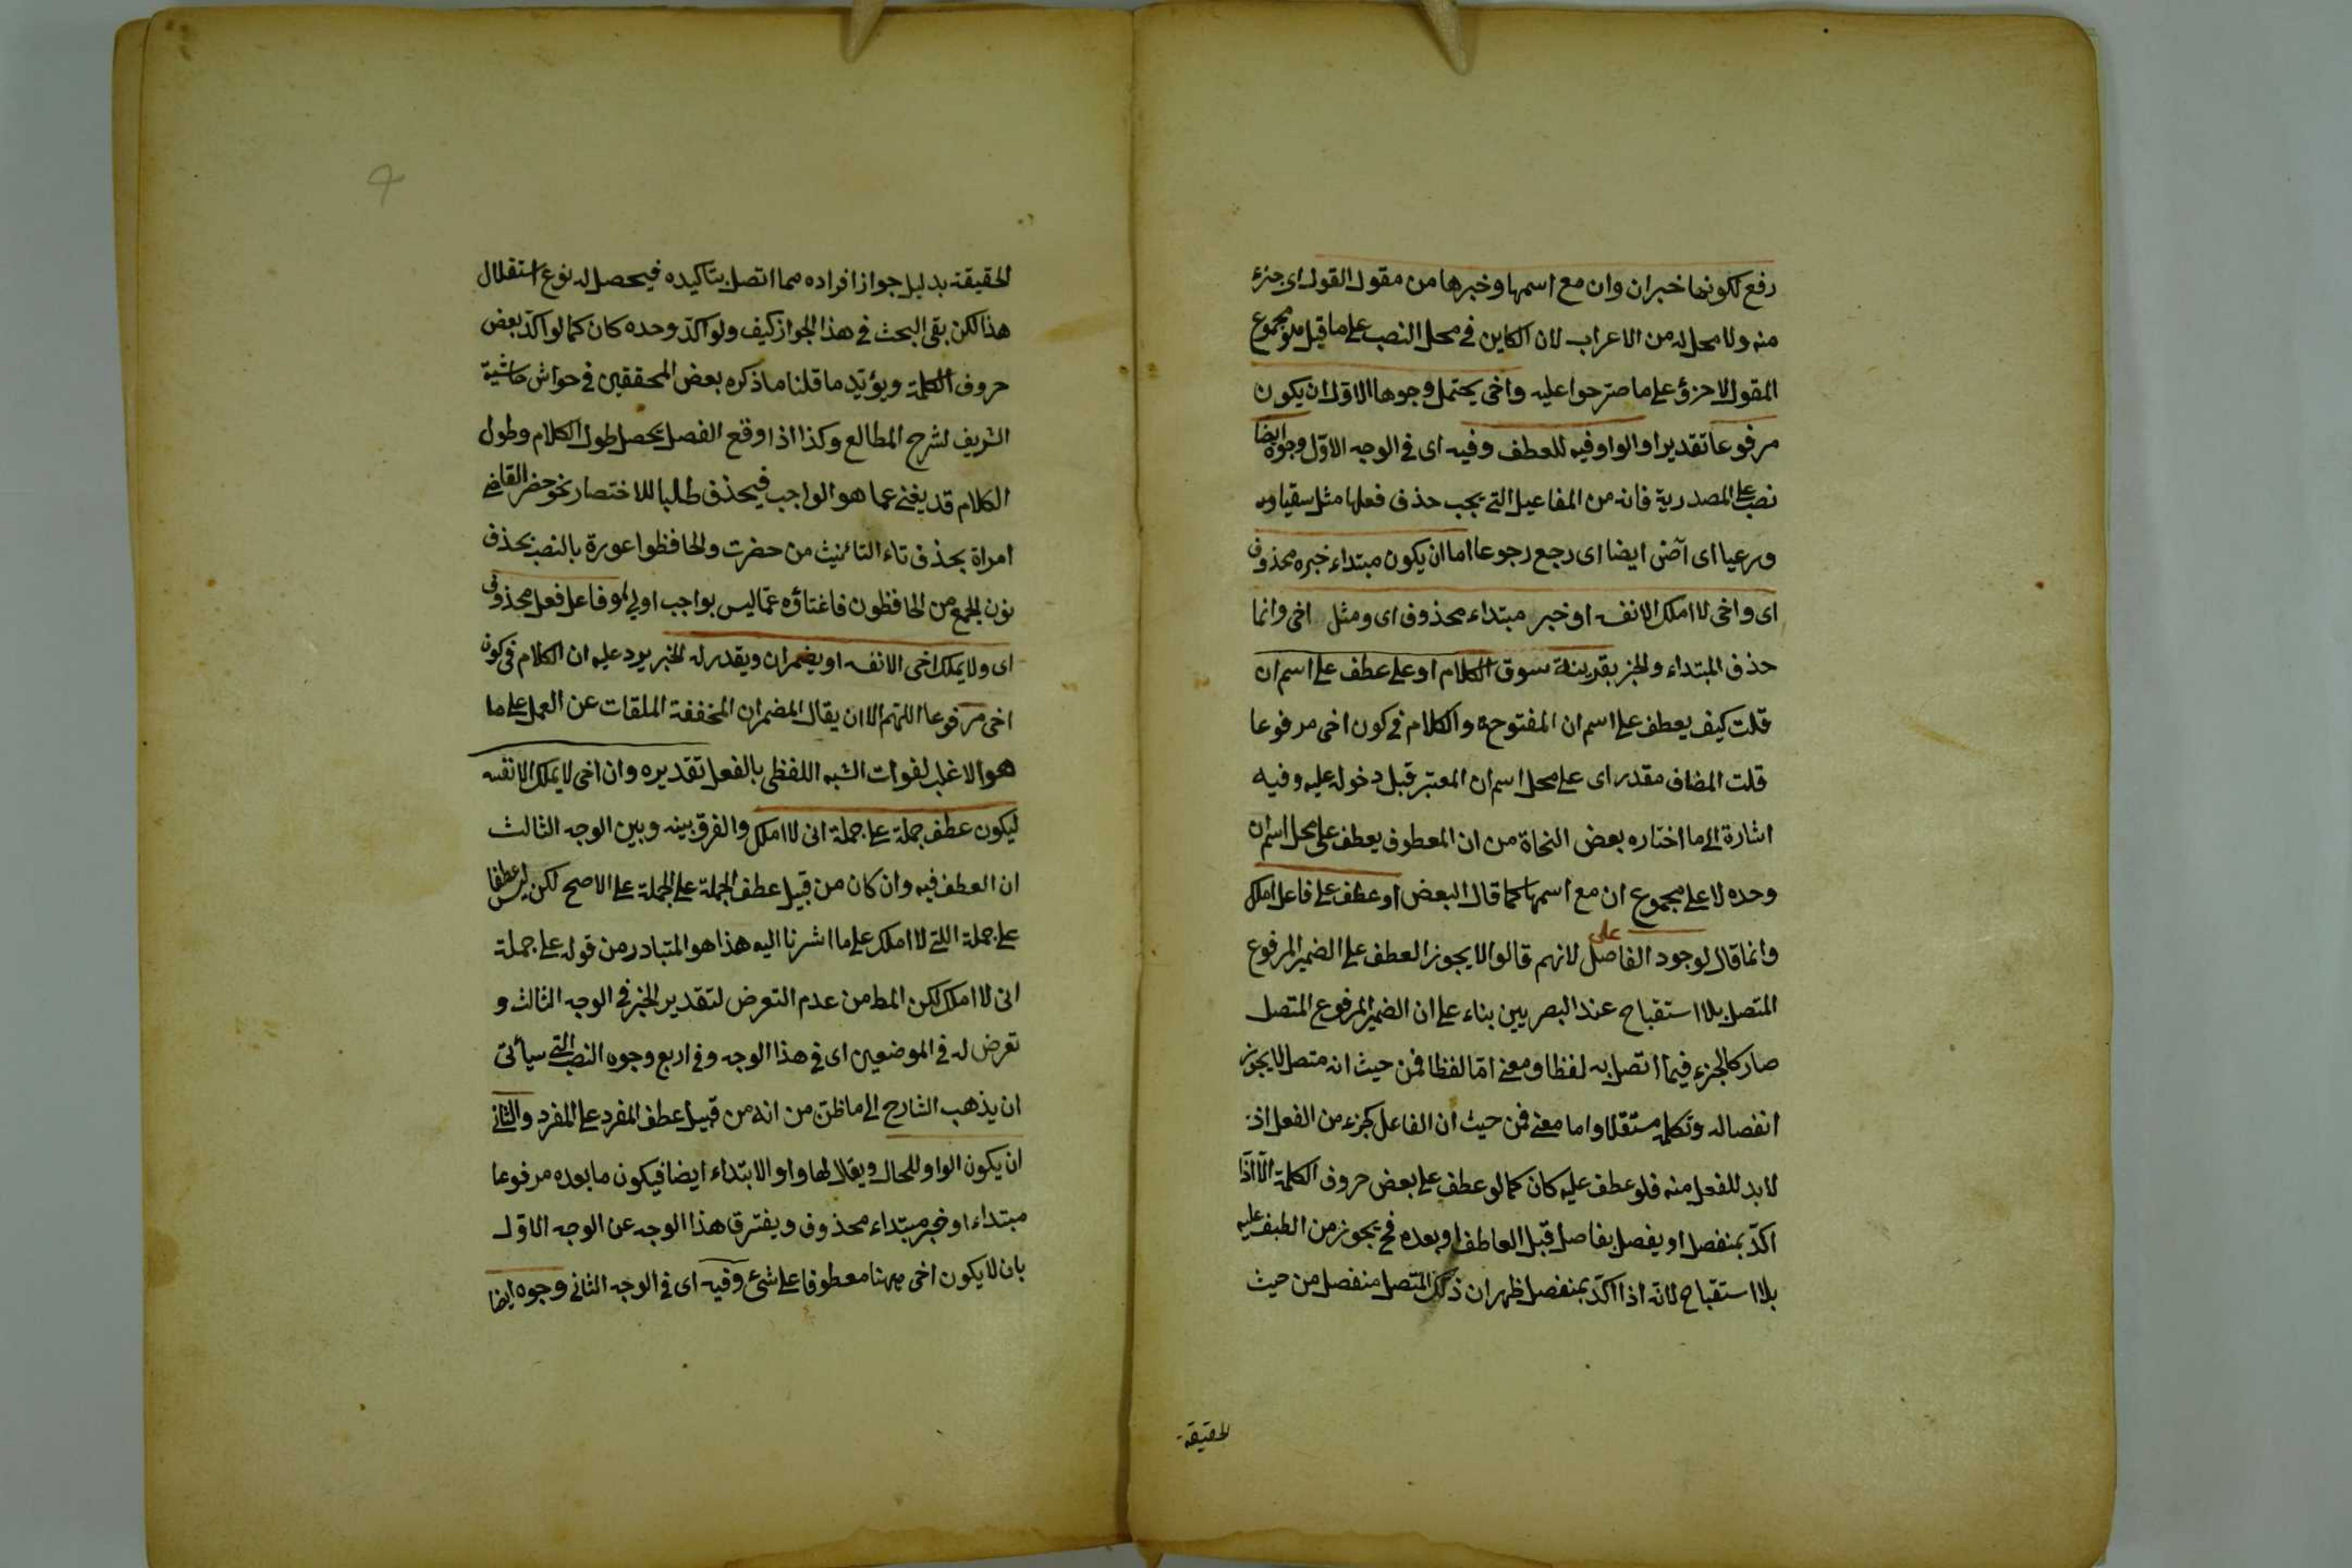 رفع لكونها خبران وان مع اسمها وخبرها من مقول القول اى جزء
منه ولا محل له من الاعراب لان الكاين فى محل النصب على ما قيل هو مجموع
المقول لا جزؤ على ما صرحوا عليه واخى يحتمل وجوها الاول ان يكون
مرفوعا تقديرا والواو فيه للعطف وفيه اى فى الوجه الاول وجوه ايضا
نصب على المصدرية فانه من المفاعيل التى يجب حذف فعلها مثل سقيا
ورعيا اى آض ايضا اى رجع رجوعا اما ان يكون مبتداء خبره محذوف
اى واخى لا املك الا نفسه او خبر مبتداء محذوف اى ومثل اخى وانما
حذف المبتداء والخبر بقرينة سوق الكلام او على عطف على اسم ان
قلت كيف يعطف على اسم ان المفتوحة والكلام فى كون اخى مرفوعا
قلت المضاف مقدر اى على محل اسم ان المعتبر قبل دخوله عليه وفيه
اشارة الى ما اختاره بعض النحاة من ان المعطوف يعطف على محل اسم ان
وحده لا على مجموع ان مع اسمها كما قال البعض او عطف على فاعل املك
على
وانما قال لوجود الفاصل لانهم قالوا لا يجوز العطف على الضمير المرفوع
المتصل بلا استقباح عند البصريين بناء على ان الضمير المرفوع المتصل
صار كالجزء فيما اتصل به لفظا ومعنى اما لفظا فمن حيث انه متصل لا يجوز
انفصاله وتكلمه مستقلا واما معنى فمن حيث ان الفاعل كجزء من الفعل اذ
لا بد للفعل منه فلو عطف عليه كان كما لو عطف على بعض حروف الكلمة الا اذا
اكد بمنفصل او يفصل بفاصل قبل العاطف او بعده فح يجوز من العطف عليه
بلا استقباح لانه اذا اكد بمنفصل ظهر ان ذلك المتصل منفصل من حيث
الحقيقة
الحقيقة بدليل جواز افراده مما اتصل بتاكيده فيحصل له نوع استقلال
هذا لكن بقى البحث فى هذا الجواز كيف ولو اكد وحده كان كما لو اكد بعض
حروف الكلمة ويؤيد ما قلنا ما ذكره بعض المحققين فى حواش حاشية
الشريف لشرح المطالع وكذا اذا وقع الفصل يحصل طول الكلام وطول
الكلام قد يغنى عما هو الواجب فيحذف طلبا للاختصار نحو حضر القاضى
امراة بحذف تاء التانيث من حضرت والحافظوا عورة بالنصب بحذف
نون الجمع من الحافظون فاغناؤه عما ليس بواجب اولى او فاعل فعل محذوف
اى ولا يملك اخى الا نفسه او يضمر ان ويقدر له الخبر يرد عليه ان الكلام فى كون
اخى مرفوعا اللهم الا ان يقال المضمر ان المخففة الملقات عن العمل على ما
هو الاغلب لفوات الشبه اللفظى بالفعل تقديره وان اخى لا يملك الا نفسه
ليكون عطف جملة على جملة انى لا املك والفرق بينه وبين الوجه الثالث
ان العطف فيه وان كان من قبيل عطف الجملة على الجملة على الاصح لكن ليس عطفا
على جملة التى لا املك على ما اشرنا اليه هذا هو المتبادر من قوله على جملة
انى لا املك لكن المط من عدم التعرض لتقدير الخبر فى الوجه الثالث و
تعرض له فى الموضعين اى فى هذا الوجه وفى اربع وجوه النصب التى سياتى
ان يذهب الشارح الى ما ظن من انه من قبيل عطف المفرد على المفرد والثانى
ان يكون الواو للحال ويقال لها واو الابتداء ايضا فيكون ما بعده مرفوعا
مبتداء او خبر مبتداء محذوف ويفترق هذا الوجه عن الوجه الاول
بان لا يكون اخى ههنا معطوفا على شئ وفيه اى فى الوجه الثانى وجوه ايضا